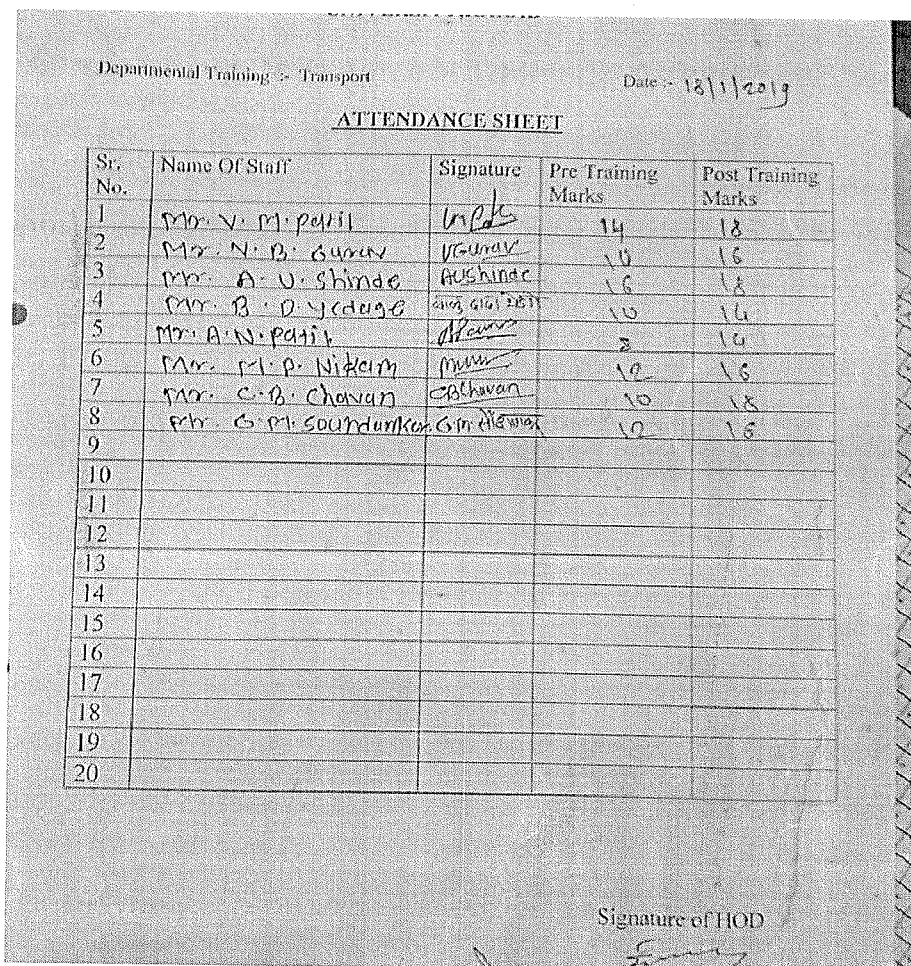 Departmental Training :- Transport
Date :- 18/1/2019
ATTENDANCE SHEET
Sr. No. Name Of Staff Signature Pre Training Marks Post Training Marks
1 Mr. V. M. Patil 14 18
2 Mr. N. B. Gurav VGurav 16
3 Mr. A. U. Shinde AUShinde 16 18
4 Mr. B. D. Yedage 10 14
5 Mr. A. N. Patil 8
6 Mr. M. P. Nikam 12 16
7 Mr. C. B. Chavan CBChavan 10 18
8 Mr. G. M. Soundankar 12 16
9
10
11
12
13
14
15
16
17
18
19
20
Signature of HOD